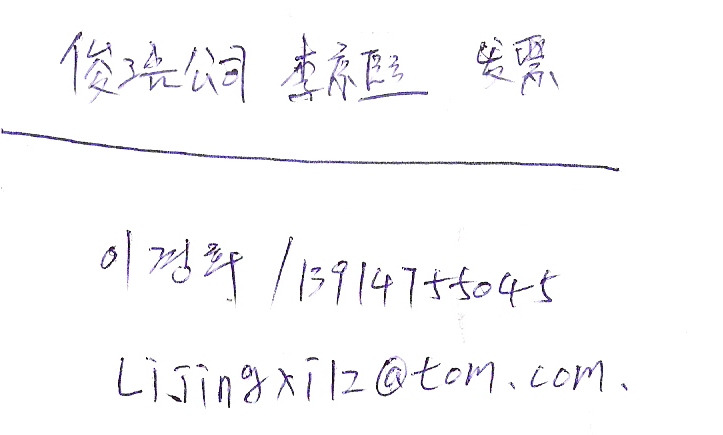 俊 公司 李京熙 发票
이경희 /13914755045
Lijingxi12@tom.com.